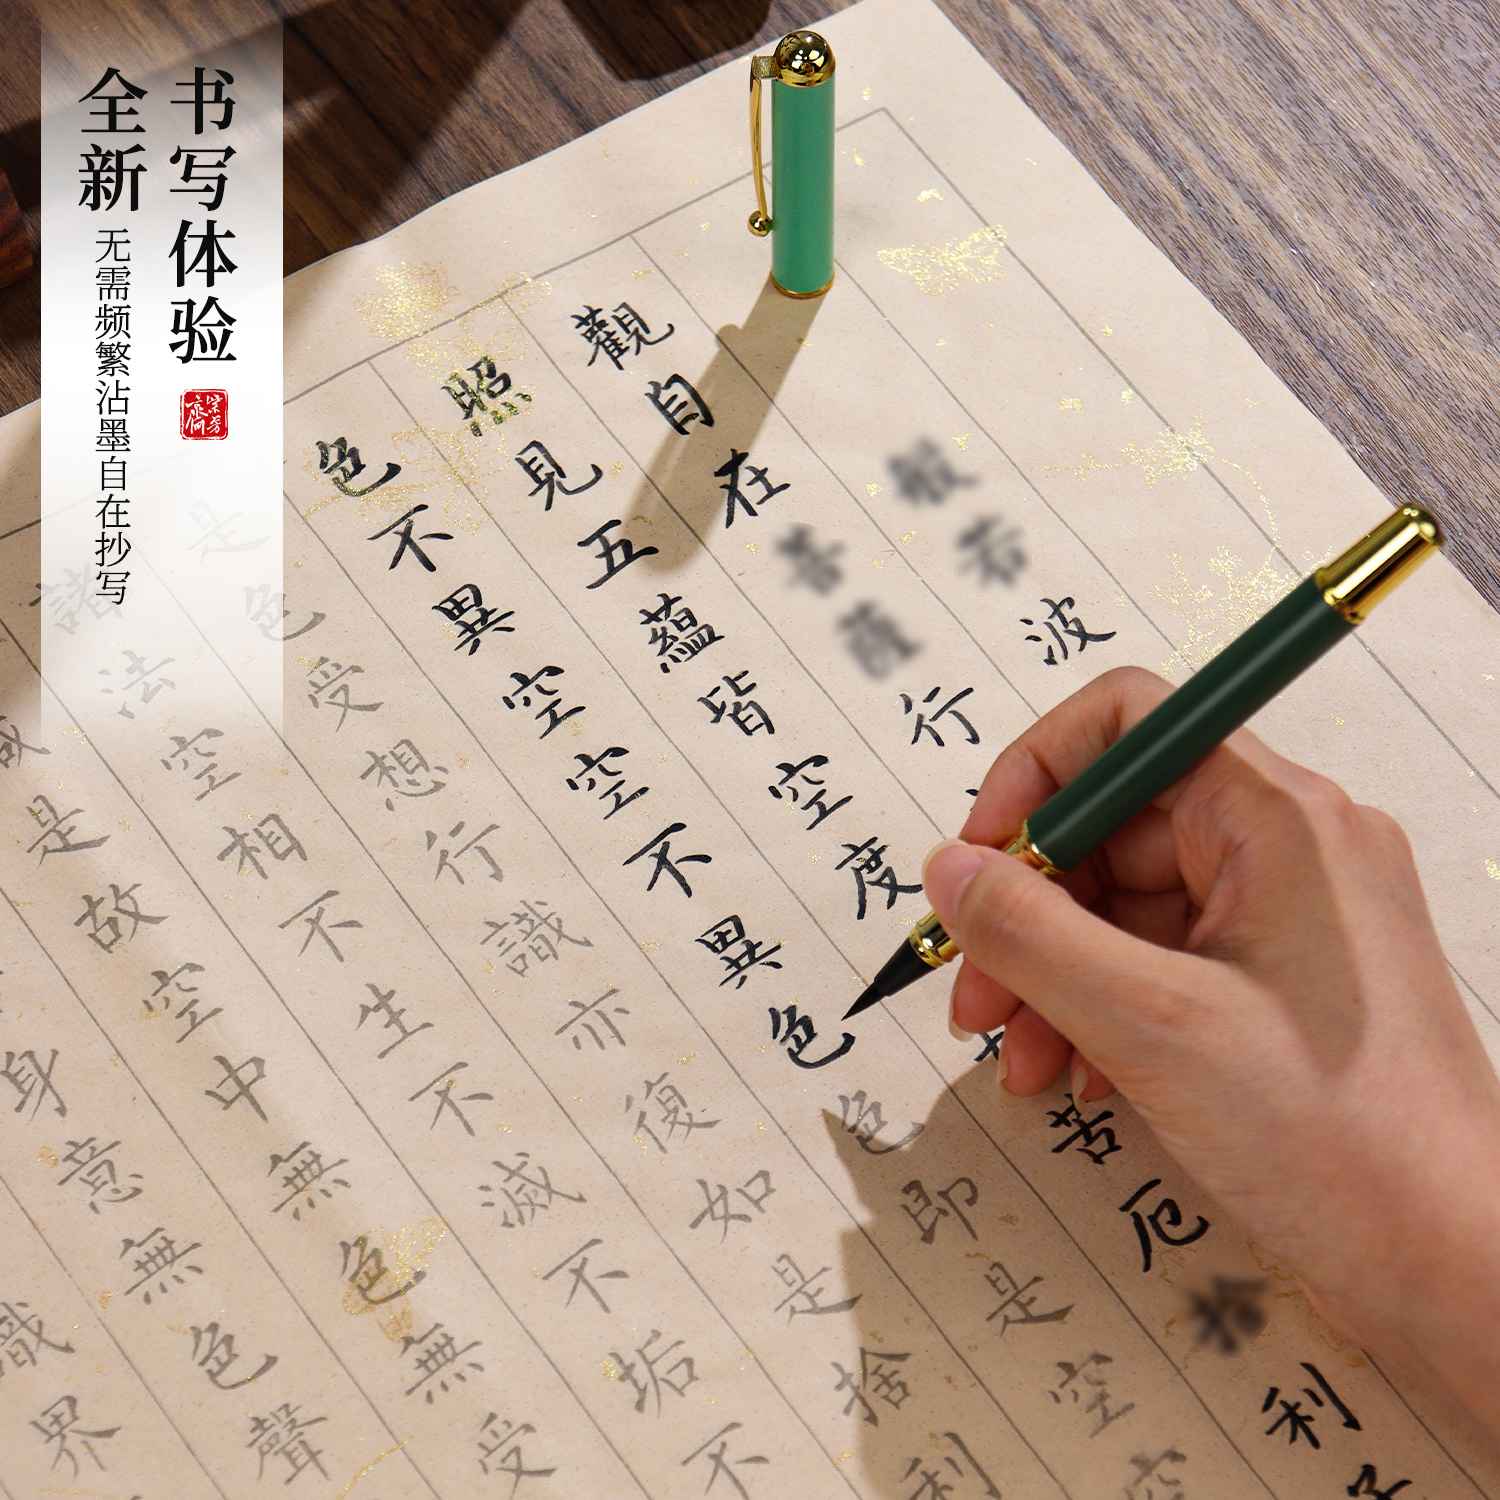 书写体验
全新
无需频繁沾墨自在抄写
波
觀自在行
照見五蘊皆空度
苦厄利子
色不異空空不異色色即是空空
是色受想行識亦復如是捨利
諸法空相不生不滅不垢不
是故空中無色無受
身意無色聲
識界